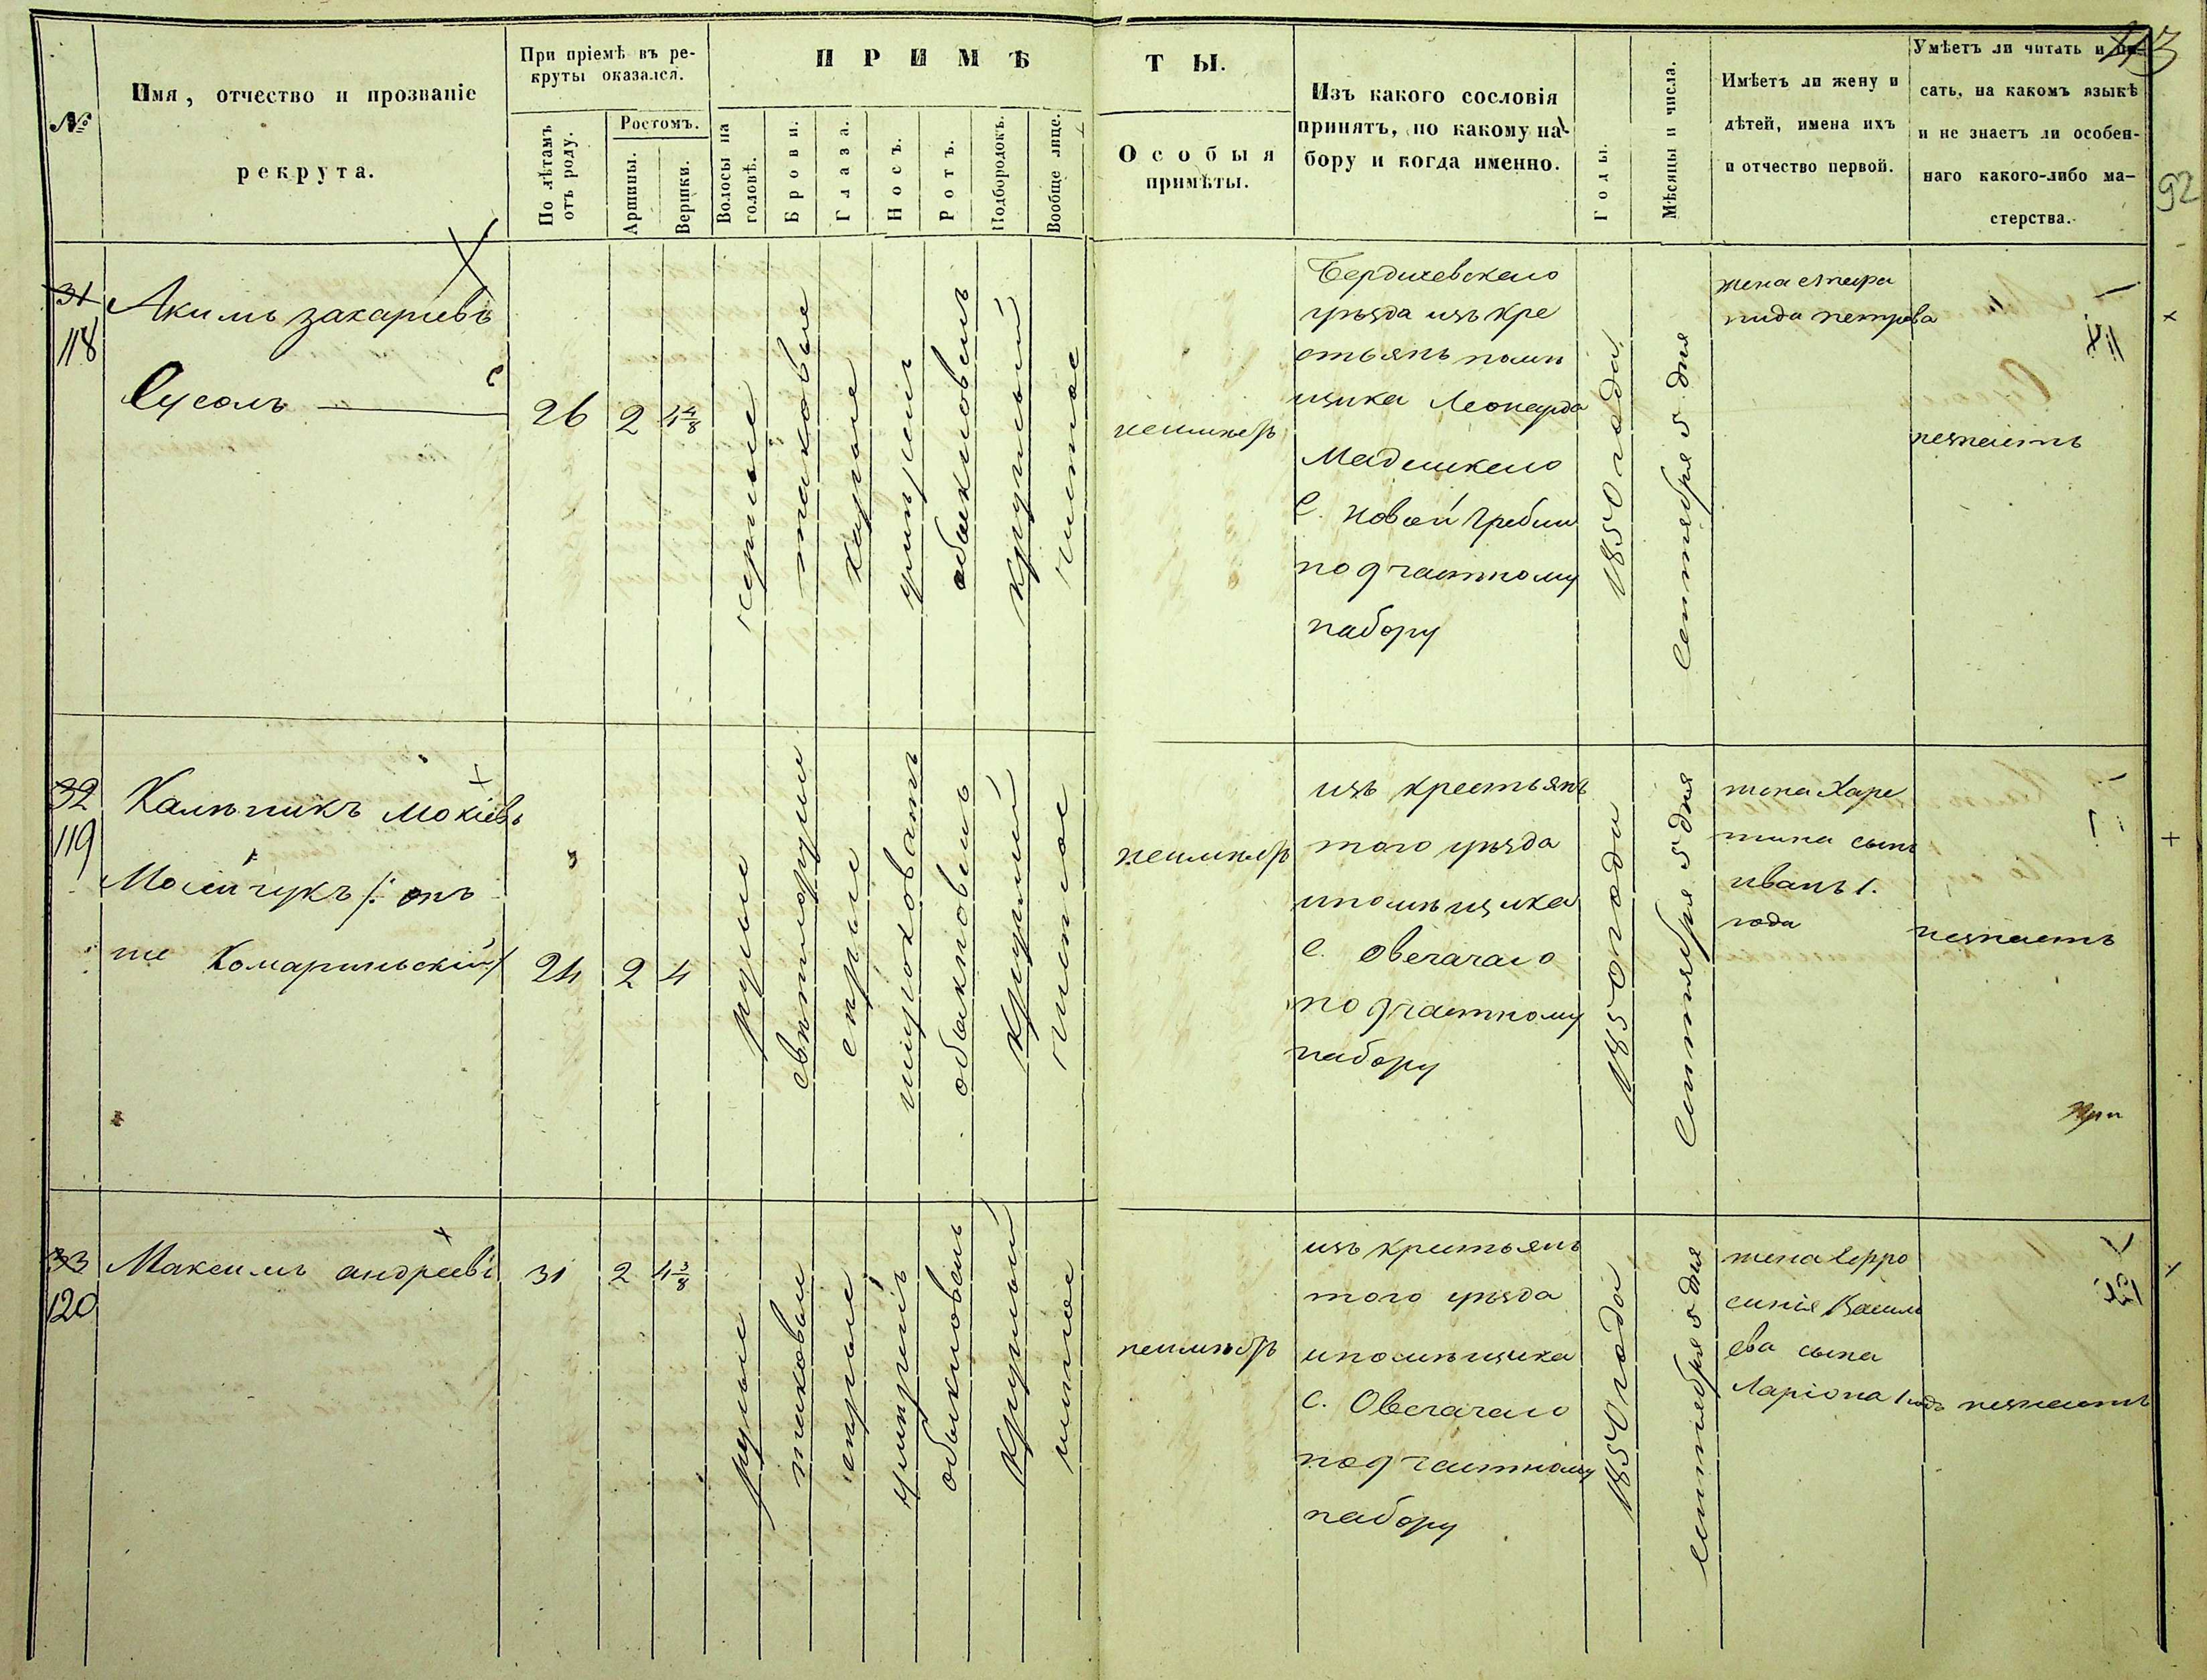 При пріемѣ въ ре-
круты оказался.
ПРИМѢ
ТЫ.
№
Имя, отчество и прозваніе
рекрута.
По лѣтамъ
отъ роду.
Ростомъ.
Аршины.
Вершки.
Волосы на
головѣ.
Брови.
Глаза.
Носъ.
Ротъ.
Подбородокъ.
Вообще лице.
Особыя
примѣты.
Изъ какого сословія
принятъ, по какому на-
бору и когда именно.
Годы.
Мѣсяцы и числа.
Имѣетъ ли жену и
дѣтей, имена ихъ
и отчество первой.
Умѣетъ ли читать и пи-
сать, на какомъ языкѣ
и не знаетъ ли особен-
наго какого-либо ма-
стерства.
92
31
118
Акимъ захаріевъ
Сусолъ
26 2 4 4/8
черные
таковые
каріе
умѣрен
обыкновенъ
круглый
чистое
неимѣетъ
Бердичевскаго
уѣзда изъ кре
стьянъ помѣ
щика Леонарда
С. Новой Гребли
по 9 частному
набору
1850 года
Сентября 5 дня
жена стефа
нида петрова
незнаетъ
32
119
Калѣникъ Мокіевъ
Мосейчукъ /: онъ
же Комариньскій /
24 2 4
русые
свѣтлорусы
сѣрые
широковатъ
обыкновенъ
круглый
чистое
неимѣетъ
изъ крестьянъ
того уѣзда
ипомѣщика
С. Овечачаго
по 9 частному
набору
1850 года
Сентября 5 дня
жена Харе
тина сынъ
иванъ 1.
года
незнаетъ
33
120
Максимъ андреевъ
31 2 4 3/8
русые
таковые
сѣрые
умѣренъ
обыкновенъ
круглый
чистое
неимѣетъ
изъ крестьянъ
того уѣзда
ипомѣщика
С. Овечачаго
по 9 частному
набору
1850 года
Сентября 5 дня
жена Ефро
синія Василь
ева сына
Ларіона 1 годъ
незнаетъ